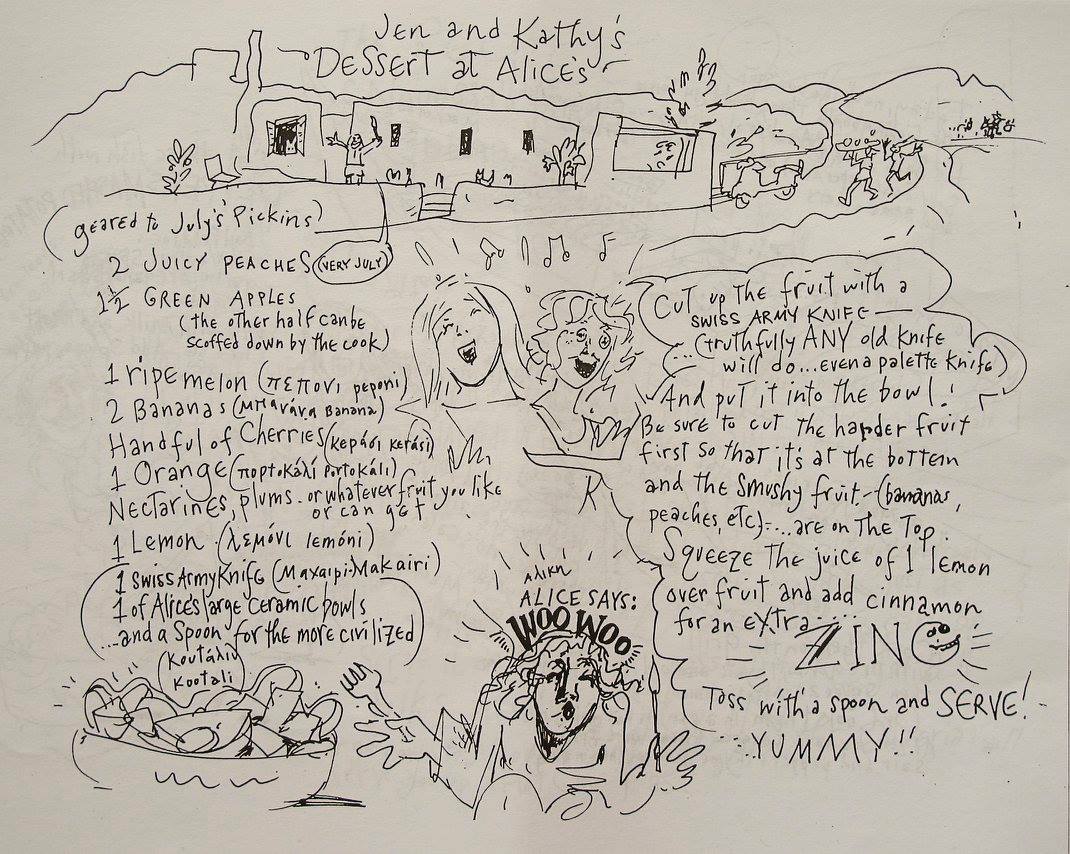 Jen and Kathy's
Dessert at Alice's
(geared to July's Pickins)
2 Juicy Peaches (very July)
1½ Green Apples
(the other half can be
scoffed down by the cook)
1 ripe melon (πεπονι peponi)
2 Bananas (Μπανάνα Banana)
Handful of Cherries (κεράσι kerási)
1 Orange (πορτοκάλι Portokáli)
Nectarines, plums - or whatever fruit you like
or can get
1 Lemon (λεμόνι lemóni)
1 Swiss Army Knife (Μαχαιρι-Makairi)
1 of Alice's large ceramic bowls
...and a Spoon for the more civilized
(Κουτάλιυ
Kootali
Cut up the fruit with a
Swiss Army Knife
(truthfully ANY old knife
will do...even a palette knife)
And put it into the bowl!
Be sure to cut the harder fruit
first so that it's at the bottem
and the smushy fruit - (bananas,
peaches, etc)-... are on the top.
Squeeze the juice of 1 lemon
over fruit and add cinnamon
for an extra.....
ZING
Toss with a spoon and SERVE!
...YUMMY!!
Αλίκη
Alice says:
WOO WOO